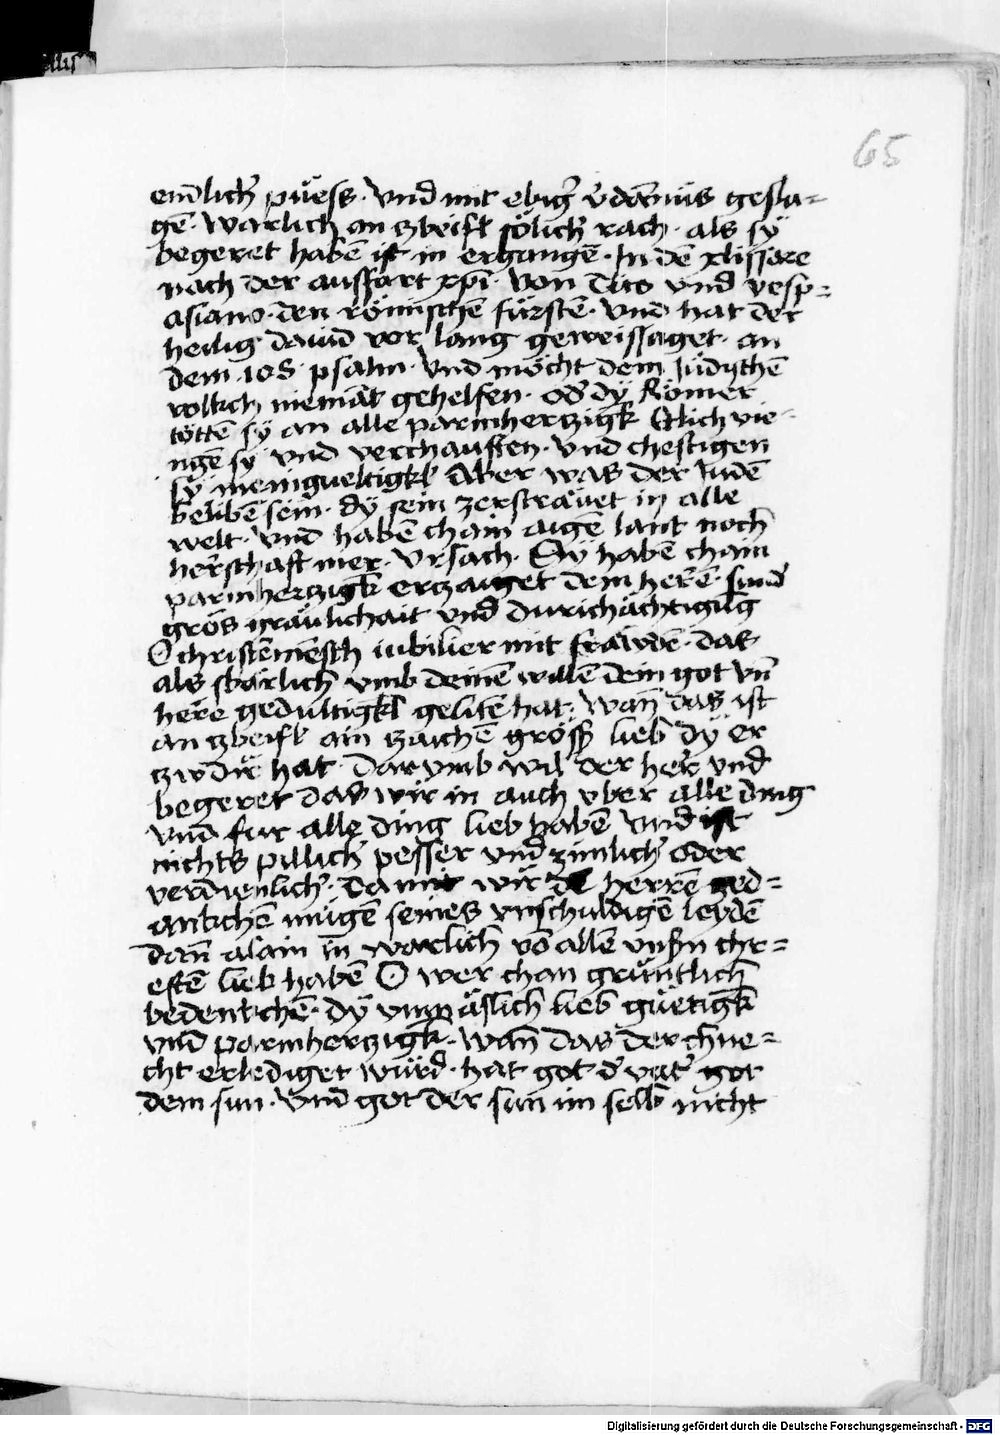 65
em̄lich͛ püess · vnd mit ebig͛ v͛dam̄nüs gesla=
gē · warlich an zbeifl sölich͛ rach · als sÿ
begeret habē ist in ergangē · In dē xlii Jare
nach der auffart xp̄i · von Tito vnd vesp=
asiano · den römischē fürstē · vnd hat der
heilig dauid vor lang geweissaget · an
dem · 108 · psalm · vnd möcht dem Jüdischē
volkch niemāt gehelfen · od͛ dÿ Römer
töttē sÿ an alle parmherzigk͛ Etlich vie=
ngē sÿ vnd verchauften · vnd chestigen
sÿ menigueltigkl͛ Aber was der Judē
belibē sein · dÿ sein zersträuet in alle
welt · vnd habē chain aigē lant noch
her͛schaft mer · vrsach · Sÿ habē chain
parmherzigk͛ erzaiget dem her͛ē · sund͛
grös gräulichait vnd durichächtigūg
O christēmēsch iubilier mit fräwdē · das
als sbärlich vmb deinē willē dein got vn̄
her͛e gedultigkl͛ gelitē hat · wan̄ das ist
an zbeifl ain zaichē gröss͛ lieb dÿ er
zw dir hat · Darvmb wil der her͛ vnd
begeret das wir in auch vber alle ding
vnd fur alle ding lieb habē vnd ist
nichts pillich͛ pesser vnd zimlich͛ oder
verdienlich͛ · Da mit wir herrē ged=
ankchē mügē seines vnschuldigē leydē
dan̄ alain in̄ warlich vō allē vnsrn chr=
eftē lieb habē O wer chan grüntlich
bedenkchē · dÿ vnmäslich lieb güetigk͛
vnd parmherzigk͛ · wan̄ das der chne=
cht erlediget würd · hat got d͛ vat͛ got
dem sun · vnd got der sun im selb nicht
Digitalisierung gefördert durch die Deutsche Forschungsgemeinschaft - DFG